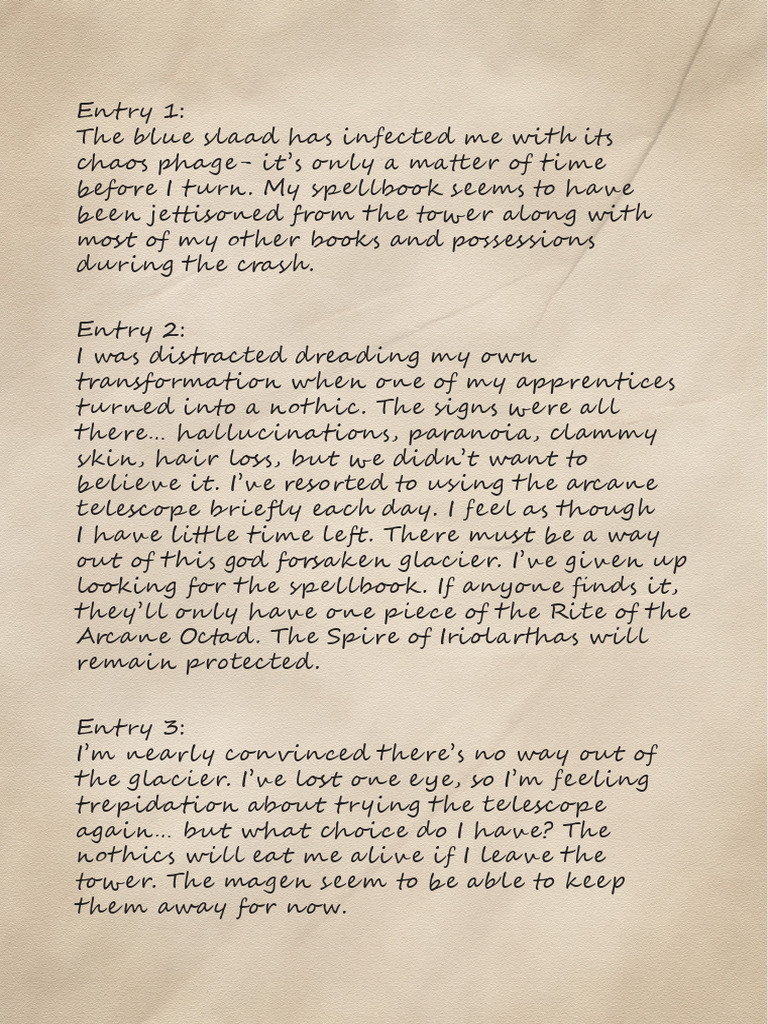 Entry 1:
The blue slaad has infected me with its
chaos phage- it's only a matter of time
before I turn. My spellbook seems to have
been jettisoned from the tower along with
most of my other books and possessions
during the crash.
Entry 2:
I was distracted dreading my own
transformation when one of my apprentices
turned into a nothic. The signs were all
there... hallucinations, paranoia, clammy
skin, hair loss, but we didn't want to
believe it. I've resorted to using the arcane
telescope briefly each day. I feel as though
I have little time left. There must be a way
out of this god forsaken glacier. I've given up
looking for the spellbook. If anyone finds it,
they'll only have one piece of the Rite of the
Arcane Octad. The Spire of Iriolarthas will
remain protected.
Entry 3:
I'm nearly convinced there's no way out of
the glacier. I've lost one eye, so I'm feeling
trepidation about trying the telescope
again... but what choice do I have? The
nothics will eat me alive if I leave the
tower. The magen seem to be able to keep
them away for now.